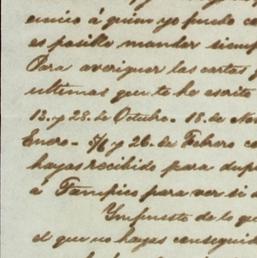 amigo á quien yo puedo co
es posible mandar siemp
Para averiguar las cartas y
ultimas que te he escrito
13. y 28. de Octubre. - 18. de Nov
Enero. - 5/6 y 26. de Febrero co
hayas recibido para dup
á Tampico para ver si a
Impuesto de lo que
el que no hayas conseguid